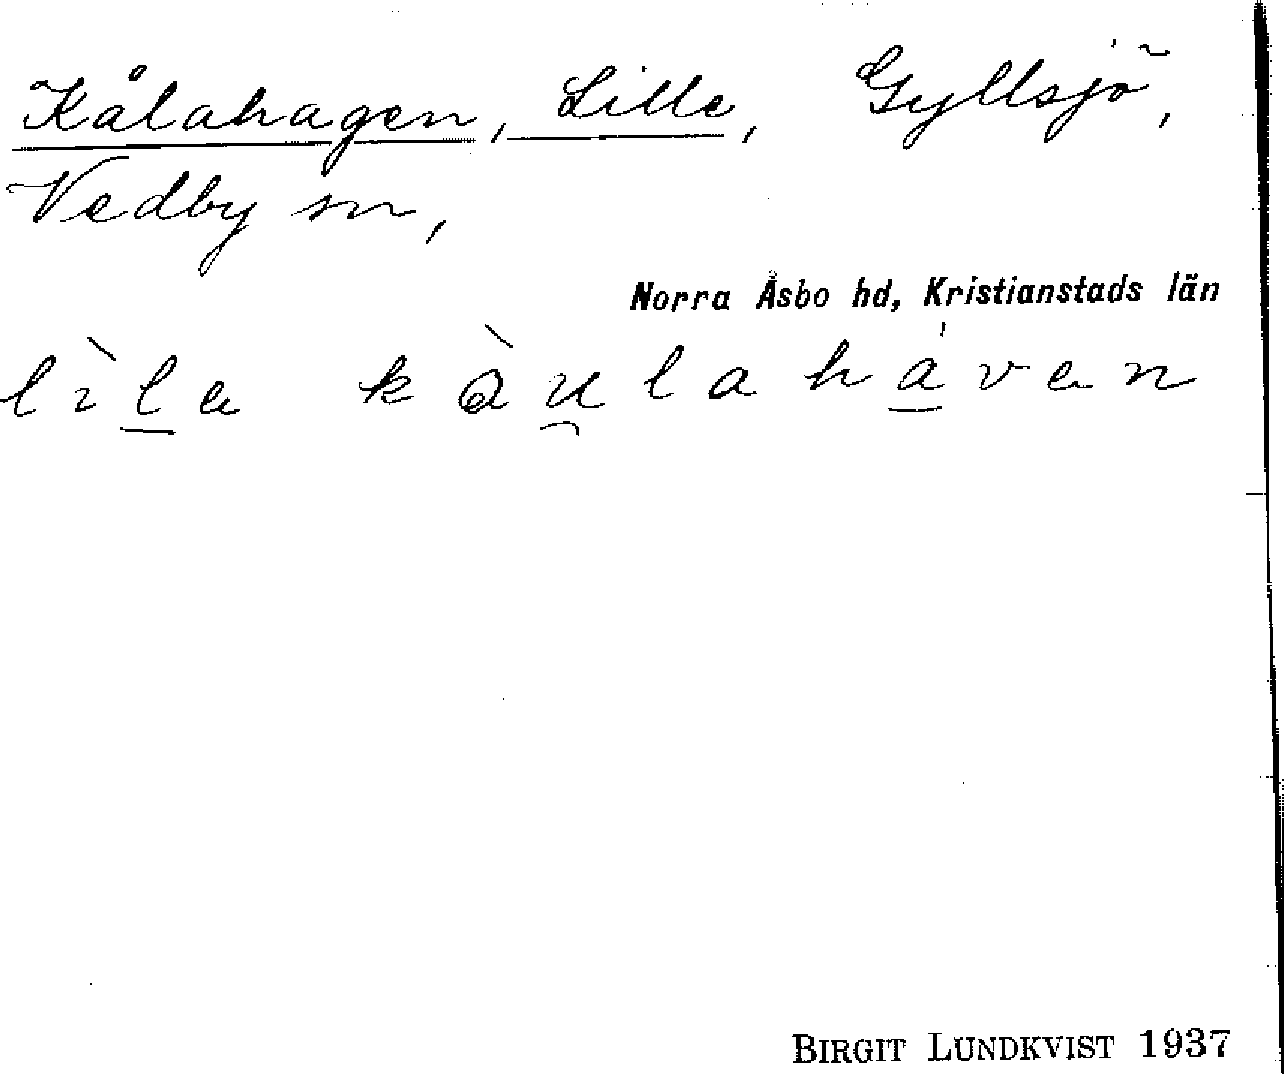 Kålahagen, Lille, Gyllsjö,
Vedby sn,
Norra Åsbo hd, Kristianstads län
lìla kàu̯lahávan
BIRGIT LUNDKVIST 1937